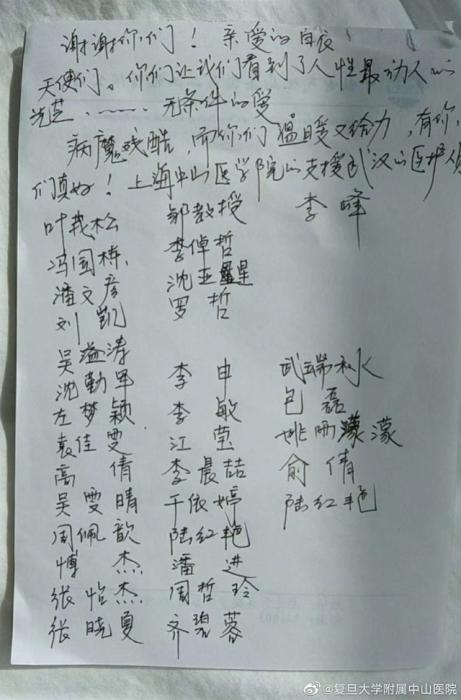 谢谢你们！亲爱的白衣
天使们。你们让我们看到了人性最动人的
光芒……无条件的爱
病魔残酷，而你们温暖又给力，有你
们真好！上海中山医学院的支援武汉的医护人员
叶茂松 邹教授 李峰
冯国栋 李倬哲
潘文彦 沈亚星
刘凯 罗哲
吴溢涛
沈勤军 李申 武端水
左梦颖 李敏 包磊
袁佳雯 江莹 姚雨濛
高倩 李晨喆 俞倩
吴雯晴 于依婷 陆红艳
周佩歆 陆红艳
博杰 潘进
张怡杰 周哲玲
张晓夏 齐碧蓉
@复旦大学附属中山医院